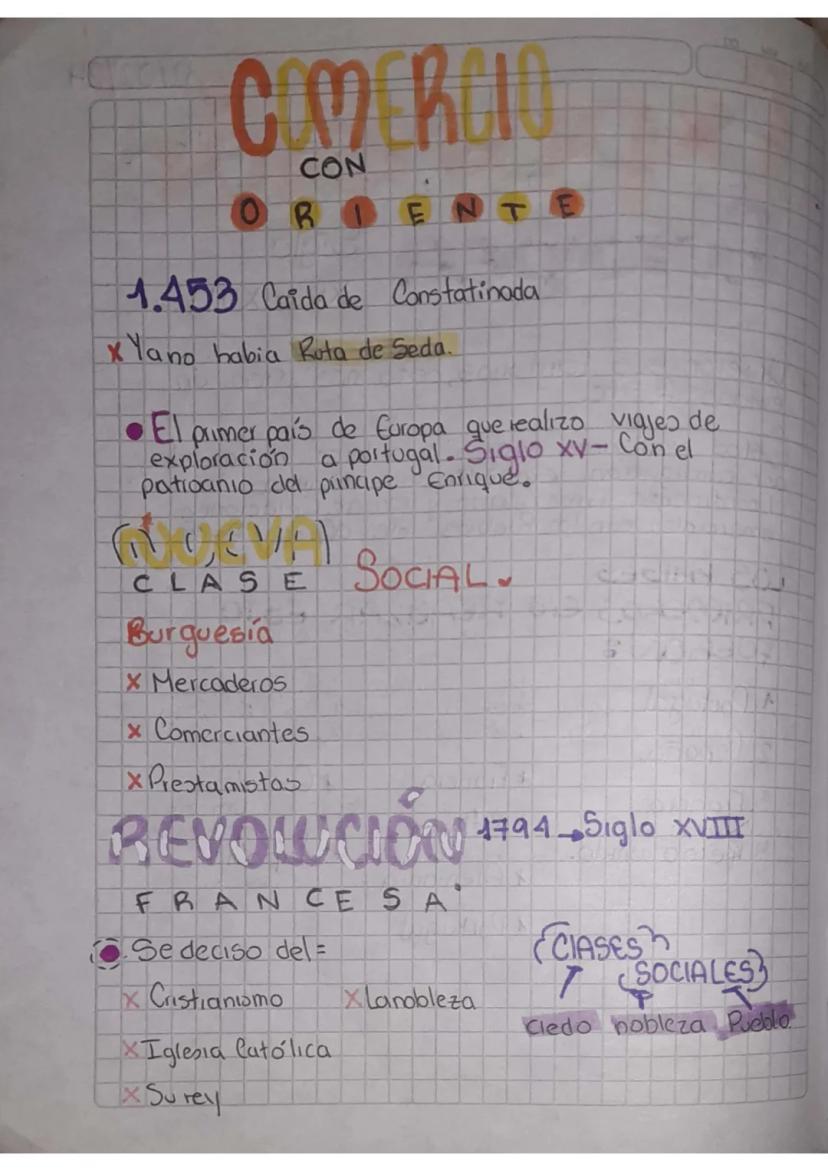 COMERCIO
CON
ORIENTE
1.453 Caida de Constatinada
x Ya no habia Ruta de Seda.
• El primer país de Europa que realizo viajes de
exploración a portugal. Siglo XV - Con el
patioanio del principe Enrique.
NUEVA
CLASE SOCIAL.
Burguesía
x Mercaderos
x Comerciantes
x Prestamistas
REVOLUCIÓN 1794 → Siglo XVIII
FRANCESA
• Se deciso del =
x Cristianismo x La nobleza
x Iglesia Católica
x Su rey
CLASES
SOCIALES
cledo nobleza Pueblo